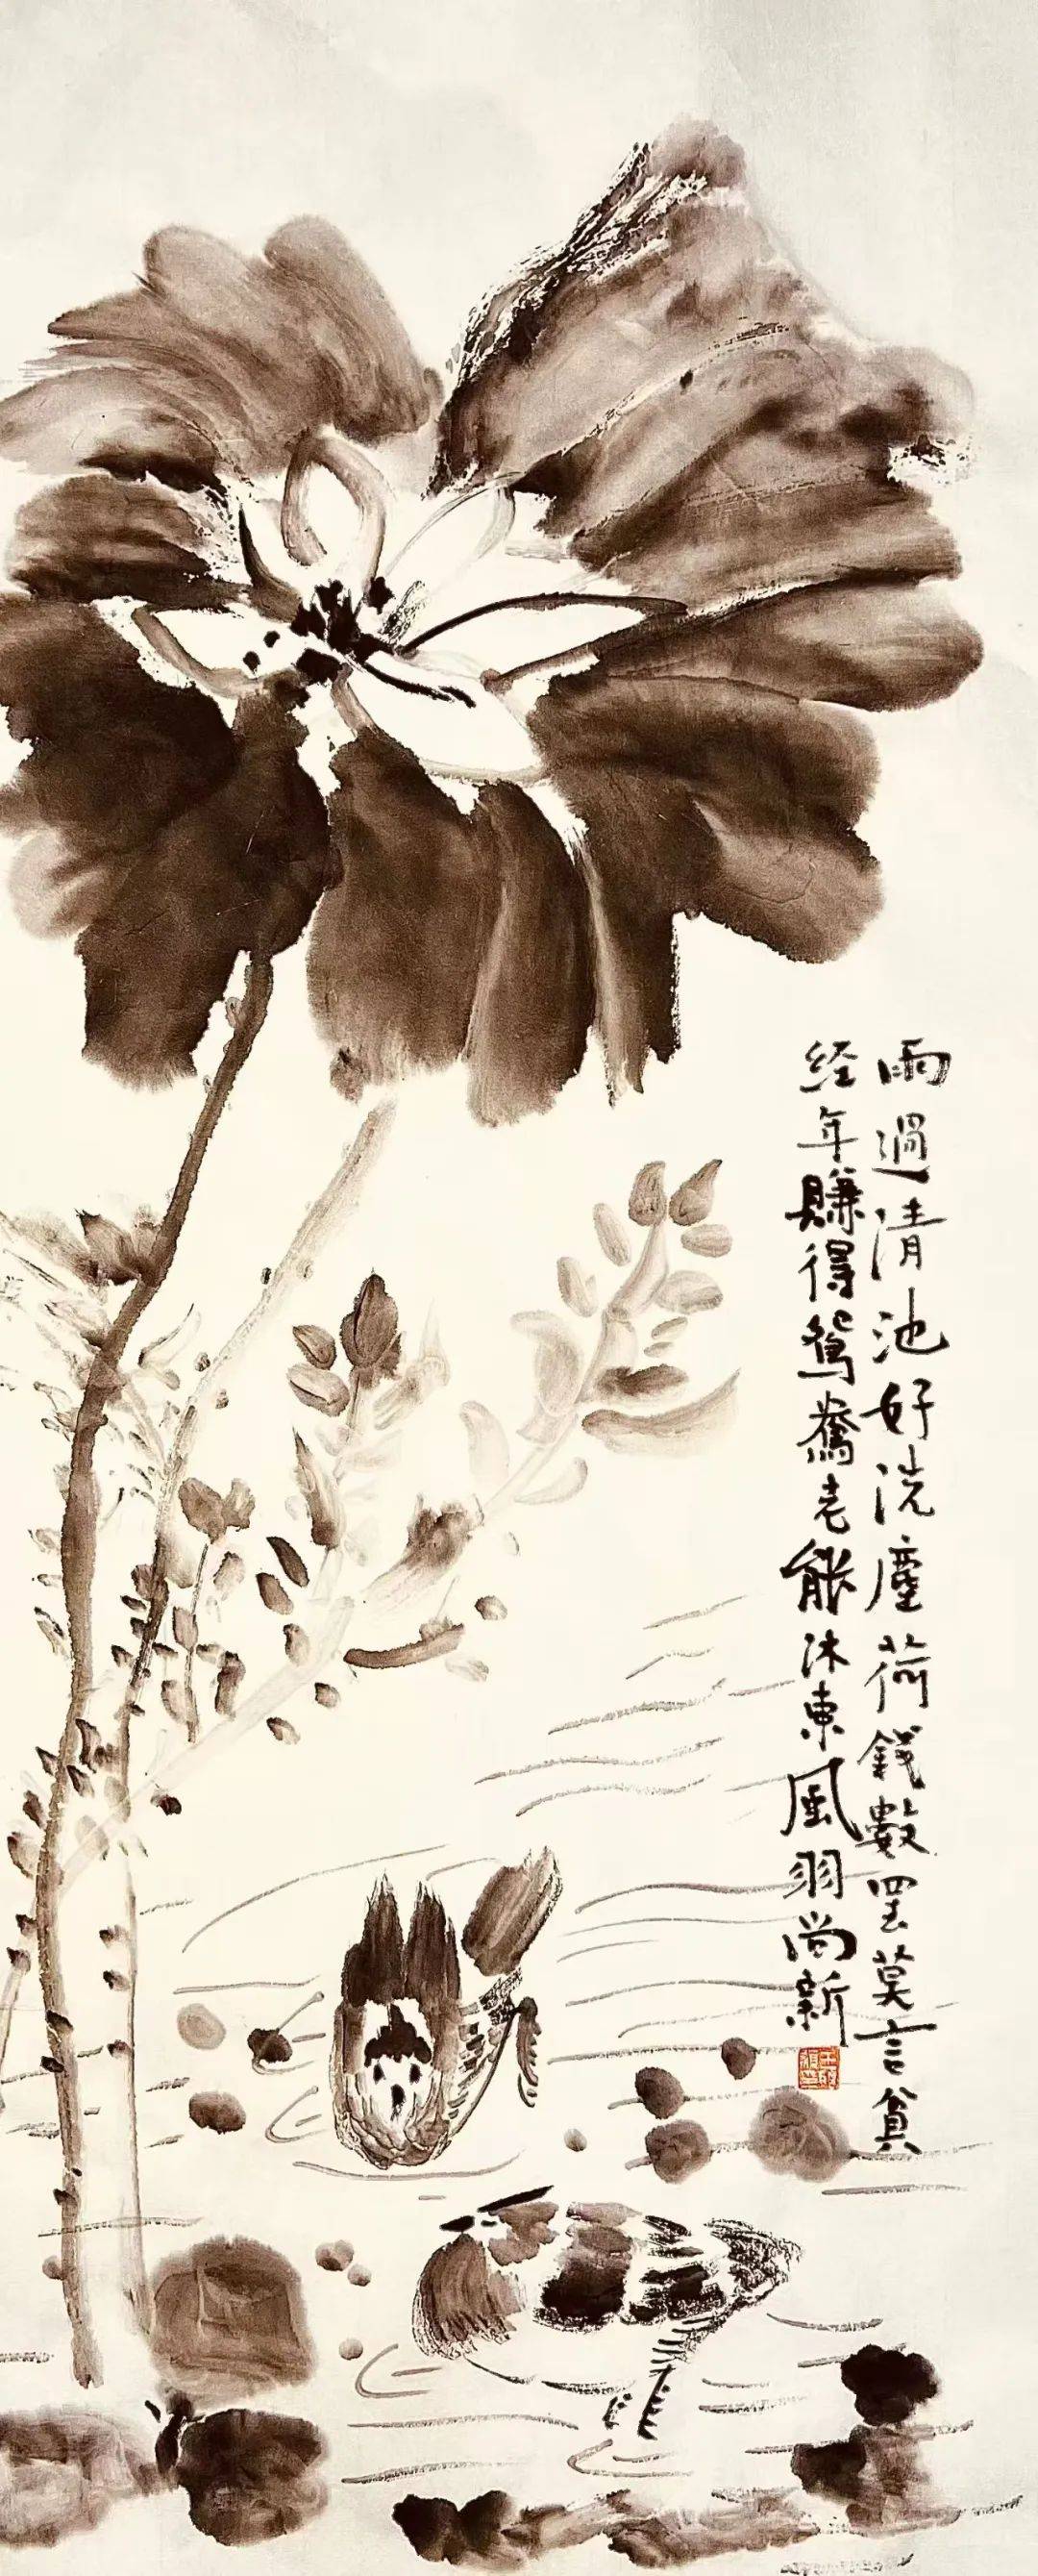 雨過清池好洗塵荷錢數罢莫言貧
经年賺得鴛鴦老能沐東風羽尚新